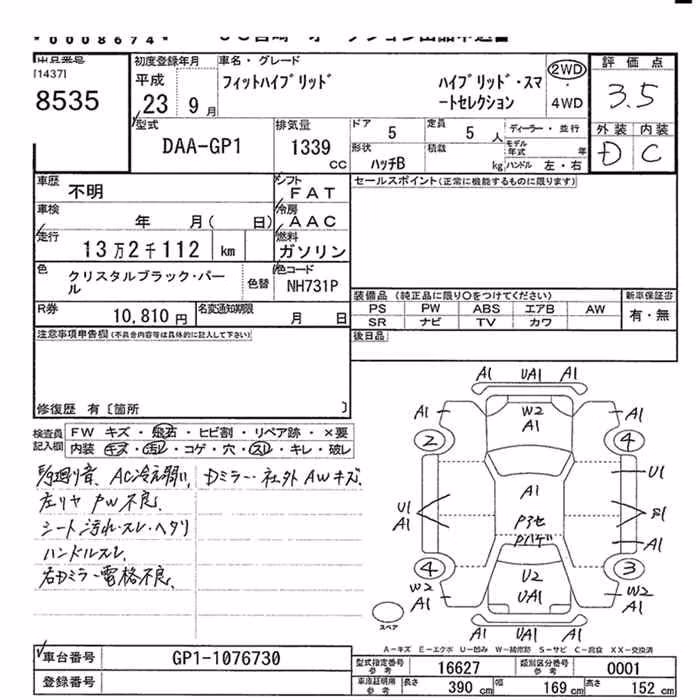 *0008674*
出品番号 初度登録年月 車名・グレード 評価点
[1437] 平成 フィットハイブリッド ハイブリッド・スマ 2WD
8535 23 9月 ートセレクション ・ 3.5
4WD
型式 排気量 ドア 5 定員 5人 ディーラー・並行 外装 内装
DAA-GP1 1339 cc 形状 ハッチB 積載 kg モデル年式 年 D C
ハンドル 左・右
車歴 不明 シフト FAT セールスポイント(正常に機能するものに限ります)
車検 年 月( 日) 冷房 AAC
走行 13万2千112 km 燃料 ガソリン
色 クリスタルブラック・パー 色替 色コード
ル NH731P
装備品 (純正品に限り○をつけてください) 新車保証書
R券 10,810円 名変通知期限 月 日 PS PW ABS エアB AW 有・無
SR ナビ TV カワ
注意事項申告欄(不具合内容等は具体的に記入して下さい) 後日品
修復歴 有〔箇所 〕
検査員 FW キズ・飛石・ヒビ割・リペア跡・×要
記入欄 内装 キズ・汚れ・コゲ・穴・スレ・キレ・破レ
AC冷え弱い、Dミラー・社外AWキズ、
左リヤPW不良、
シート汚れ・スレ・ヘタリ
ハンドルスレ、
右Dミラー電格不良、
A1 UA1 A1
A1 W2 A1 A1
2 4
U1
U1 A1 A1
A1
A1
4 U2 3
W2 A1 UA1 W2 A1
A1 UA1 A1
スペア
A-キズ E-エクボ U-凹み W-補修跡 S-サビ C-腐食 XX-交換済
車台番号 GP1-1076730
登録番号
型式指定番号 参考 16627 類別区分番号 参考 0001
車庫証明用 参考 長さ 390cm 幅 169cm 高さ 152cm